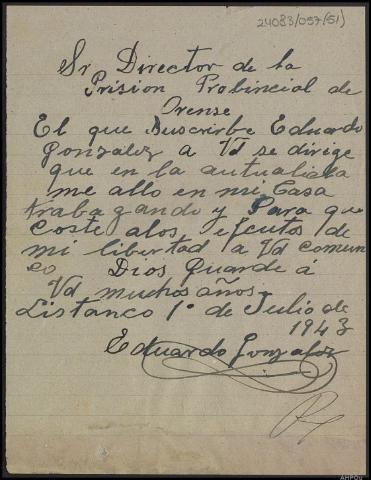 24083/097(51)
Sr Director de la
Prision Probincial de
Orense
El que Suscribe Eduardo
Gonzalez a Vd se dirige
que en la autualida
me allo en mi Casa
trabagando y Para que
Coste alos efectos de
mi libertad a Vd Comun
co
Dios Guarde á
Vd muchos años-
Listanco 1º de Julio de
1943
Eduardo Gonzalez
AHPOu